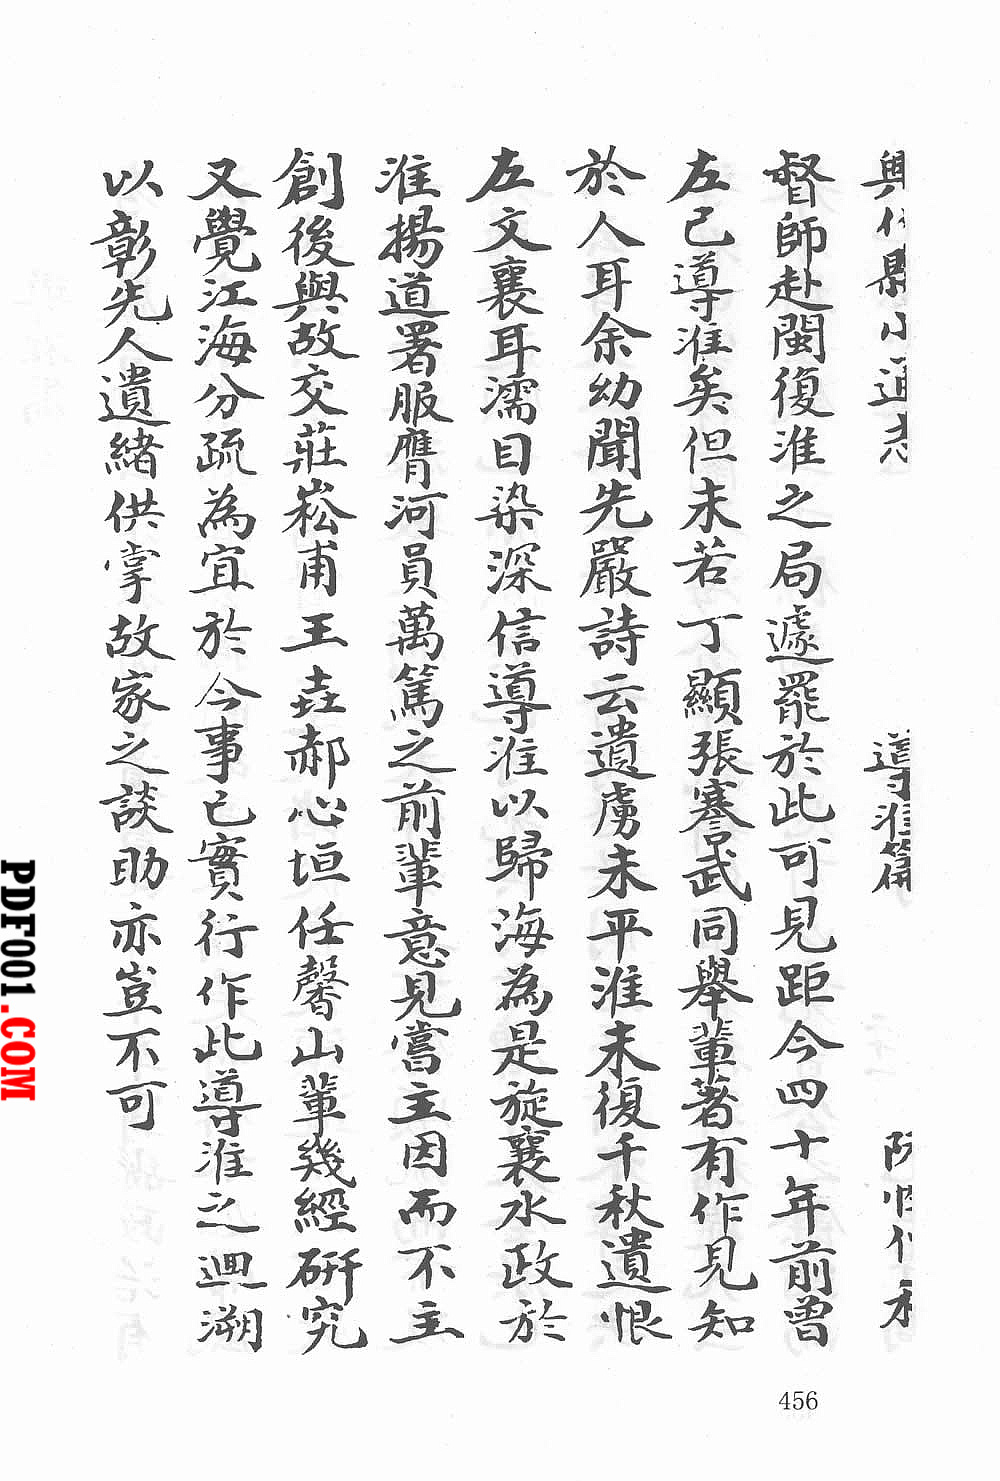 興化縣小通志 導淮篇
督師赴閩復淮之局遽罷於此可見距今四十年前曾
左已導淮矣但未若丁顯張謇武同舉輩著有作見知
於人耳余幼聞先嚴詩云遺虜未平淮未復千秋遺恨
左文襄耳濡目染深信導淮以歸海為是旋襄水政於
淮揚道署服膺河員萬篤之前輩意見嘗主因而不主
創後與故交莊崧甫王垚郝心垣任馨山輩幾經研究
又覺江海分疏為宜於今事已實行作此導淮之迴溯
以彰先人遺緒供掌故家之談助亦豈不可
456
PDF001.COM